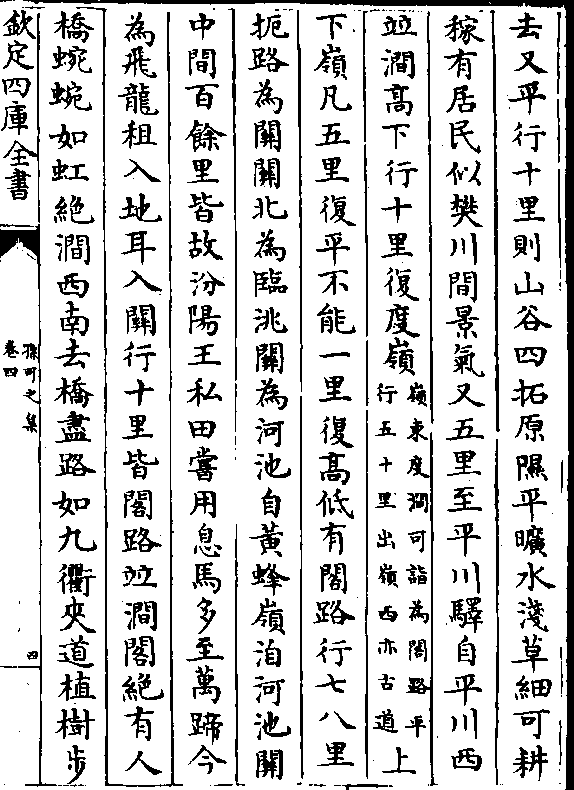 去又平行十里則山谷四拓原隰平曠水淺草細可耕
稼有居民似樊川間景氣又五里至平川驛自平川西
並澗高下行十里復度嶺嶺東度澗可詣為閣路平行五十里出嶺西亦古道上
下嶺凡五里復平不能一里復高低有閣路行七八里
扼路為關關北為臨洮關為河池自黃蜂嶺洎河池關
中間百餘里皆故汾陽王私田嘗用息馬多至萬蹄今
為飛龍租入地耳入關行十里皆閣路並澗閣絕有人
橋蜿蜿如虹絕澗西南去橋盡路如九衢夾道植樹步
欽定四庫全書
孫可之集
卷四
四